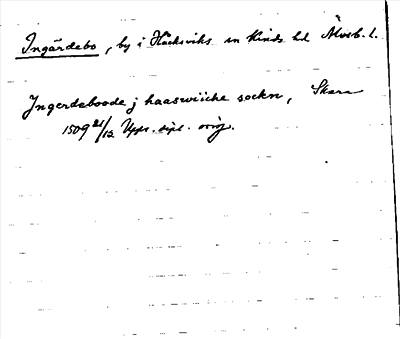 Ingärdebo, by i Håcksviks sn Kinds hd Älvsb. l.
Jngerdaboode j haaswiiche sockn, Skara
1509 21/12 Upps. dipl. orig.